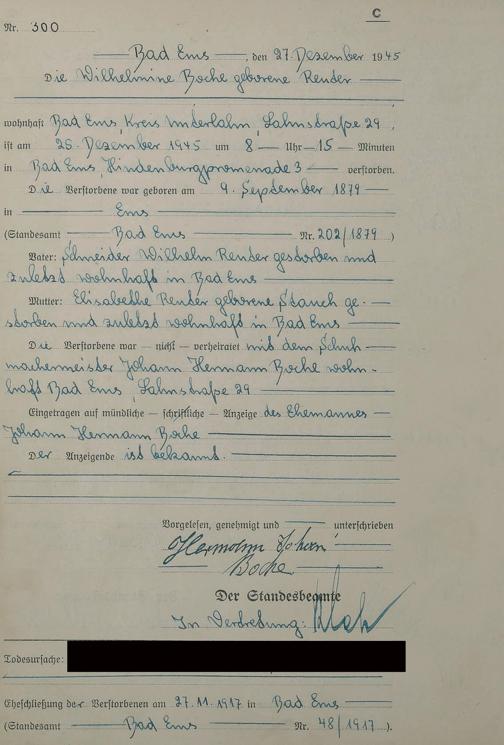 C
Nr. 300
Bad Ems, den 27. Dezember 1945
Die Wilhelmine Boche geborene Render
wohnhaft Bad Ems, Kreis Unterlahn, Lahnstraße 29,
ist am 26. Dezember 1945 um 8 Uhr 15 Minuten
in Bad Ems, Hindenburgpromenade 3 verstorben.
Die Verstorbene war geboren am 9. September 1879
in Ems
(Standesamt Bad Ems Nr. 202/1879)
Vater: Schneider Wilhelm Render gestorben und
zuletzt wohnhaft in Bad Ems
Mutter: Elisabethe Render geborene Stauch ge-
storben und zuletzt wohnhaft in Bad Ems
Die Verstorbene war — nicht — verheiratet mit dem Schuh-
machermeister Johann Hermann Boche wohn-
haft Bad Ems, Lahnstraße 29
Eingetragen auf mündliche — schriftliche — Anzeige des Ehemannes
Johann Hermann Boche
Der Anzeigende ist bekannt.
Vorgelesen, genehmigt und unterschrieben
Hermann Johann
Boche
Der Standesbeamte
In Vertretung:
Todesursache:
Eheschließung der Verstorbenen am 27.11.1917 in Bad Ems
(Standesamt Bad Ems Nr. 48/1917).